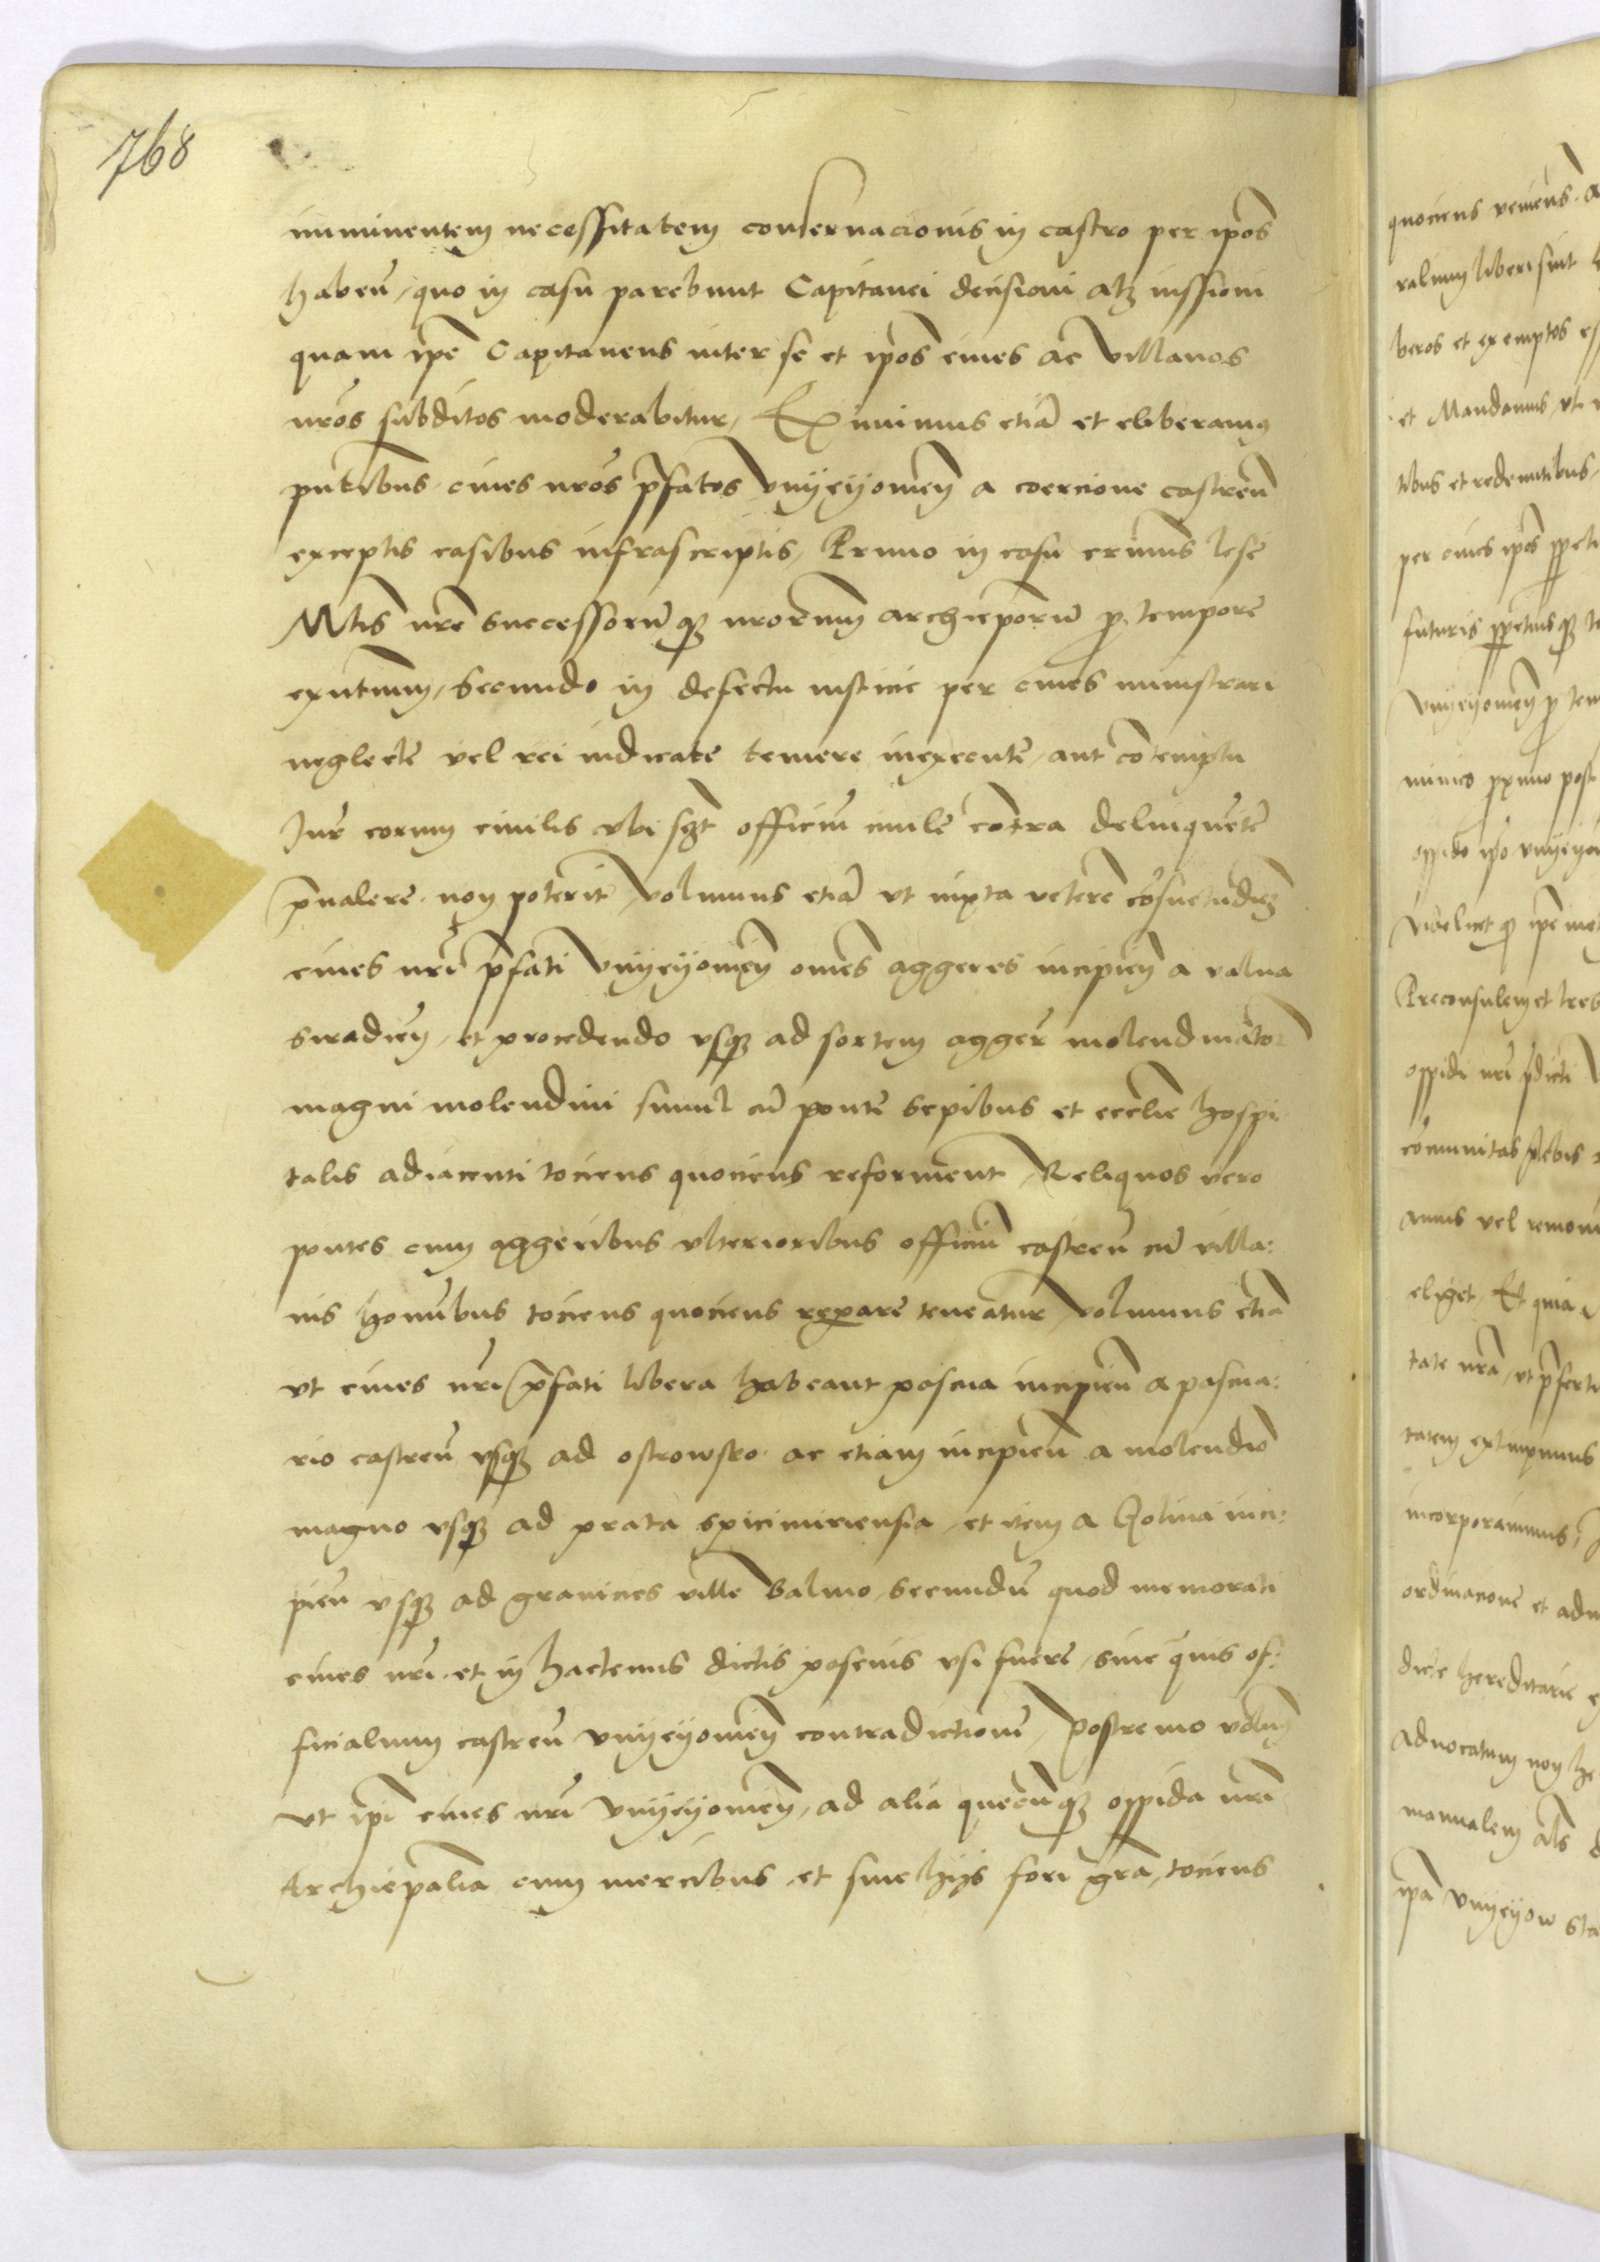 768
imminentem necessitatem conseruacionis in castro per ip̄os
habeñ, quo in casu parebunt Capitanei decisioni atqȝ iussioni
quam ip̄e Capitaneus inter se et ip̄os ciues ac villanos
nr̄os subditos moderabitur, Eximimus etiā et eliberamus
pn̄tibus ciues nr̄os p̄fatos vnyeyowieñ a coercione castreñ
exceptis casibus infrascriptis, Primo in casu criminis lese
Mtis nr̄e successorūqȝ nrorum archiep̄orū pro tempore
exn̄tium, Secundo in defectu iusticie per ciues ministrari
neglecte vel rei iudicate temere inexecute, aut cōtemptu
Iur eorum ciuilis vbi sczt officiū ciuile cōtra delinquētē
p̄ualere non poterit, volumus etiā vt iuxta veterē cōsuetudīeȝ
ciues nr̄i p̄fati vnyeyowieñ omēs aggeres incipieñ a valua
Siradieñ, et procedendo vsqȝ ad sortem aggerū molendinator
magni molendini simul cū ponte sepibus et ecclie hospi
talis adiacenti tociens quociens reforment, Reliquos vero
pontes cum aggeribus vlterioribus officiū castreñ cū villa:
nis hom̄ibus tociens quociens reparare teneātur, volumus etiā
vt ciues nr̄i p̄fati libera habeant pascua incipieñ a pascua:
rio castreñ vsqȝ ad ostrowsko ac etiam incipieñ a molendīo
magno vsqȝ ad prata spicimiriensia, et item a Golina inci:
pieñ vsqȝ ad granicies ville Balino, secundū quod memorati
ciues nr̄i et in hactenus dictis pascuis vsi fuere, siue quis of:
ficialium castreñ vnyeyowieñ contradictione, Postremo volum̄
vt ip̄i ciues nr̄i vnyeyowieñ, ad alia quecūqȝ oppida nr̄i
Archiep̄alia cum mercibus et siue hijs fori gr̄a, tociens
quociens
ralium liberi sint
beros et exemptos
et Mandamus, vt
tibus et redeuntibus,
per ciues ip̄os
futuris
vnyeyowieñ pro tem
post
oppido ip̄o
videlicet
Preconsulem et tres
oppidi nr̄i p̄dicti
cōmunitas plebis
annis vel remoui
eliget, Et quia
tate nr̄a, vt p̄fertur
tatem
incorporauimus,
ordinacione et adm
dicte hereditarie
Aduocatum non
manualem als
ip̄a vnyeyow Sta